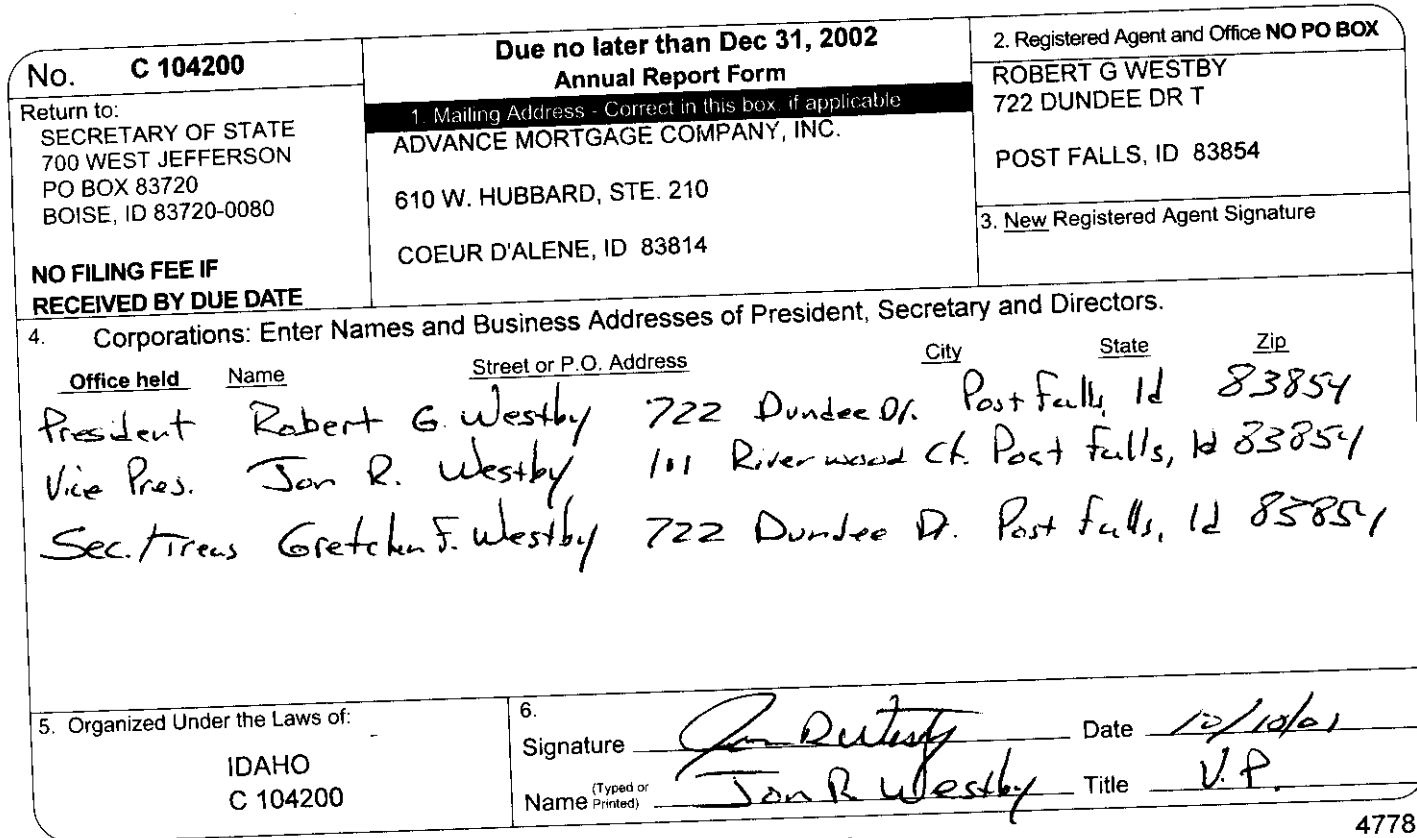 No. C 104200
Return to:
SECRETARY OF STATE
700 WEST JEFFERSON
PO BOX 83720
BOISE, ID 83720-0080
NO FILING FEE IF
RECEIVED BY DUE DATE
Due no later than Dec 31, 2002
Annual Report Form
1. Mailing Address - Correct in this box, if applicable
ADVANCE MORTGAGE COMPANY, INC.
610 W. HUBBARD, STE. 210
COEUR D'ALENE, ID 83814
2. Registered Agent and Office NO PO BOX
ROBERT G WESTBY
722 DUNDEE DR T
POST FALLS, ID 83854
3. New Registered Agent Signature
4. Corporations: Enter Names and Business Addresses of President, Secretary and Directors.
Office held Name Street or P.O. Address City State Zip
President Robert G. Westby 722 Dundee Dr. Post Falls, Id 83854
Vice Pres. Jon R. Westby 101 Riverwood Ct. Post Falls, Id 83854
Sec./Treas Gretchen F. Westby 722 Dundee Dr. Post Falls, Id 83854
5. Organized Under the Laws of:
IDAHO
C 104200
6.
Signature Jon R Westby Date 10/10/01
Name (Typed or Printed) Jon R Westby Title V.P.
4778